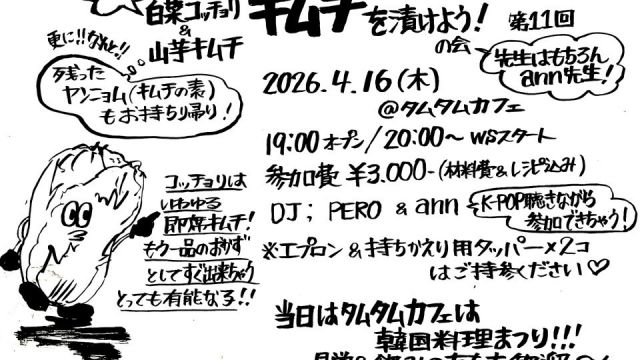 白菜コッチョリ
&
山芋キムチ
キムチを漬けよう!
の会
第11回
先生はもちろん
ann先生!
更に!!なんと!!
残った
ヤンニョム(キムチの素)
もお持ち帰り!
2026.4.16(木)
@タムタムカフェ
19:00オープン/20:00~WSスタート
参加費 ¥3.000-(材料費&レシピ込み)
DJ; PERO & ann
K-POP聴きながら
参加できちゃう!
※エプロン&持ちかえり用タッパー×2コ
はご持参ください♡
コッチョリは
いわゆる
即席キムチ!
もう一品のおかず
としてすぐ出来ちゃう
とっても有能なる!!
当日はタムタムカフェは
韓国料理まつり!!!